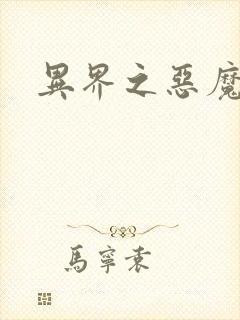 異界之惡魔
馬寧袁